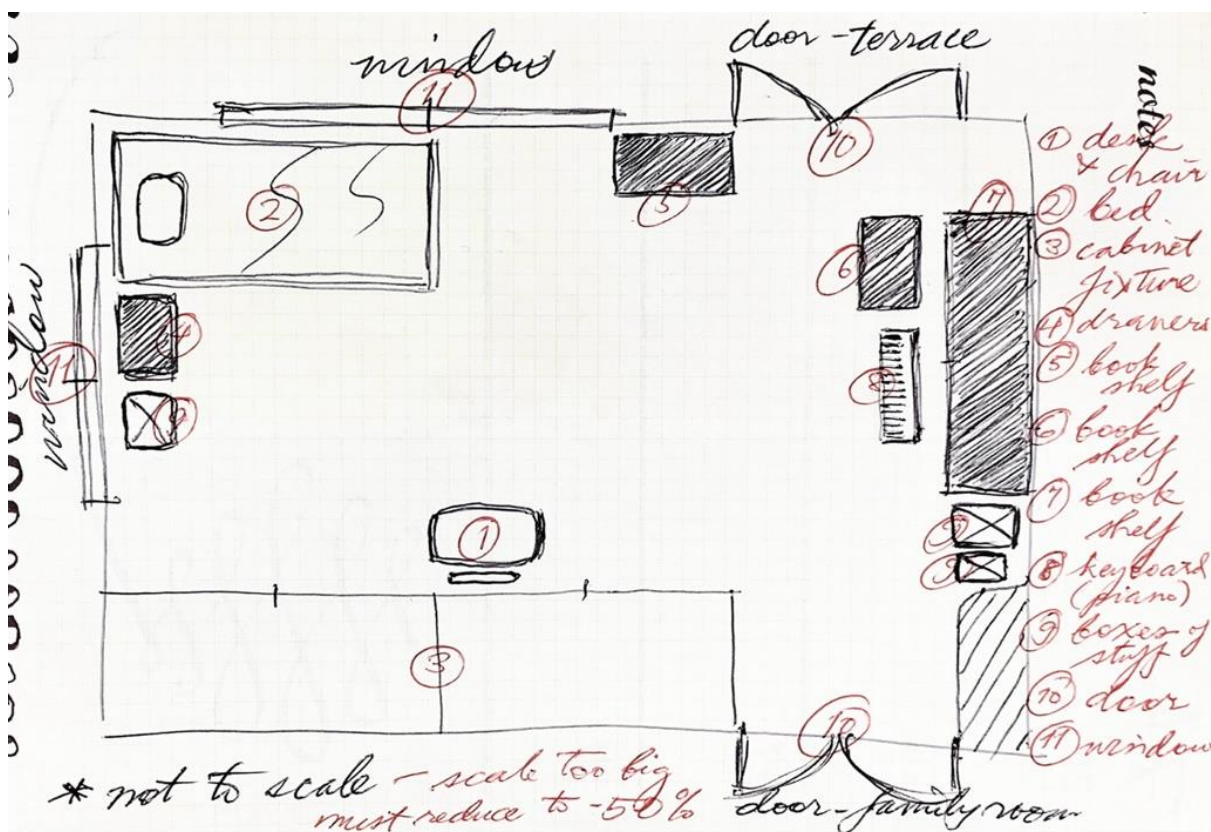 window
door-terrace
11
10
2
5
7
6
4
11
8
9
1
9
9
3
10
window
notes
① desk
& chair
② bed.
③ cabinet
fixture
④ drawers
⑤ book
shelf
⑥ book
shelf
⑦ book
shelf
⑧ keyboard
(piano)
⑨ boxes of
stuff
⑩ door
⑪ window
* not to scale - scale too big
must reduce to -50%
door-family room